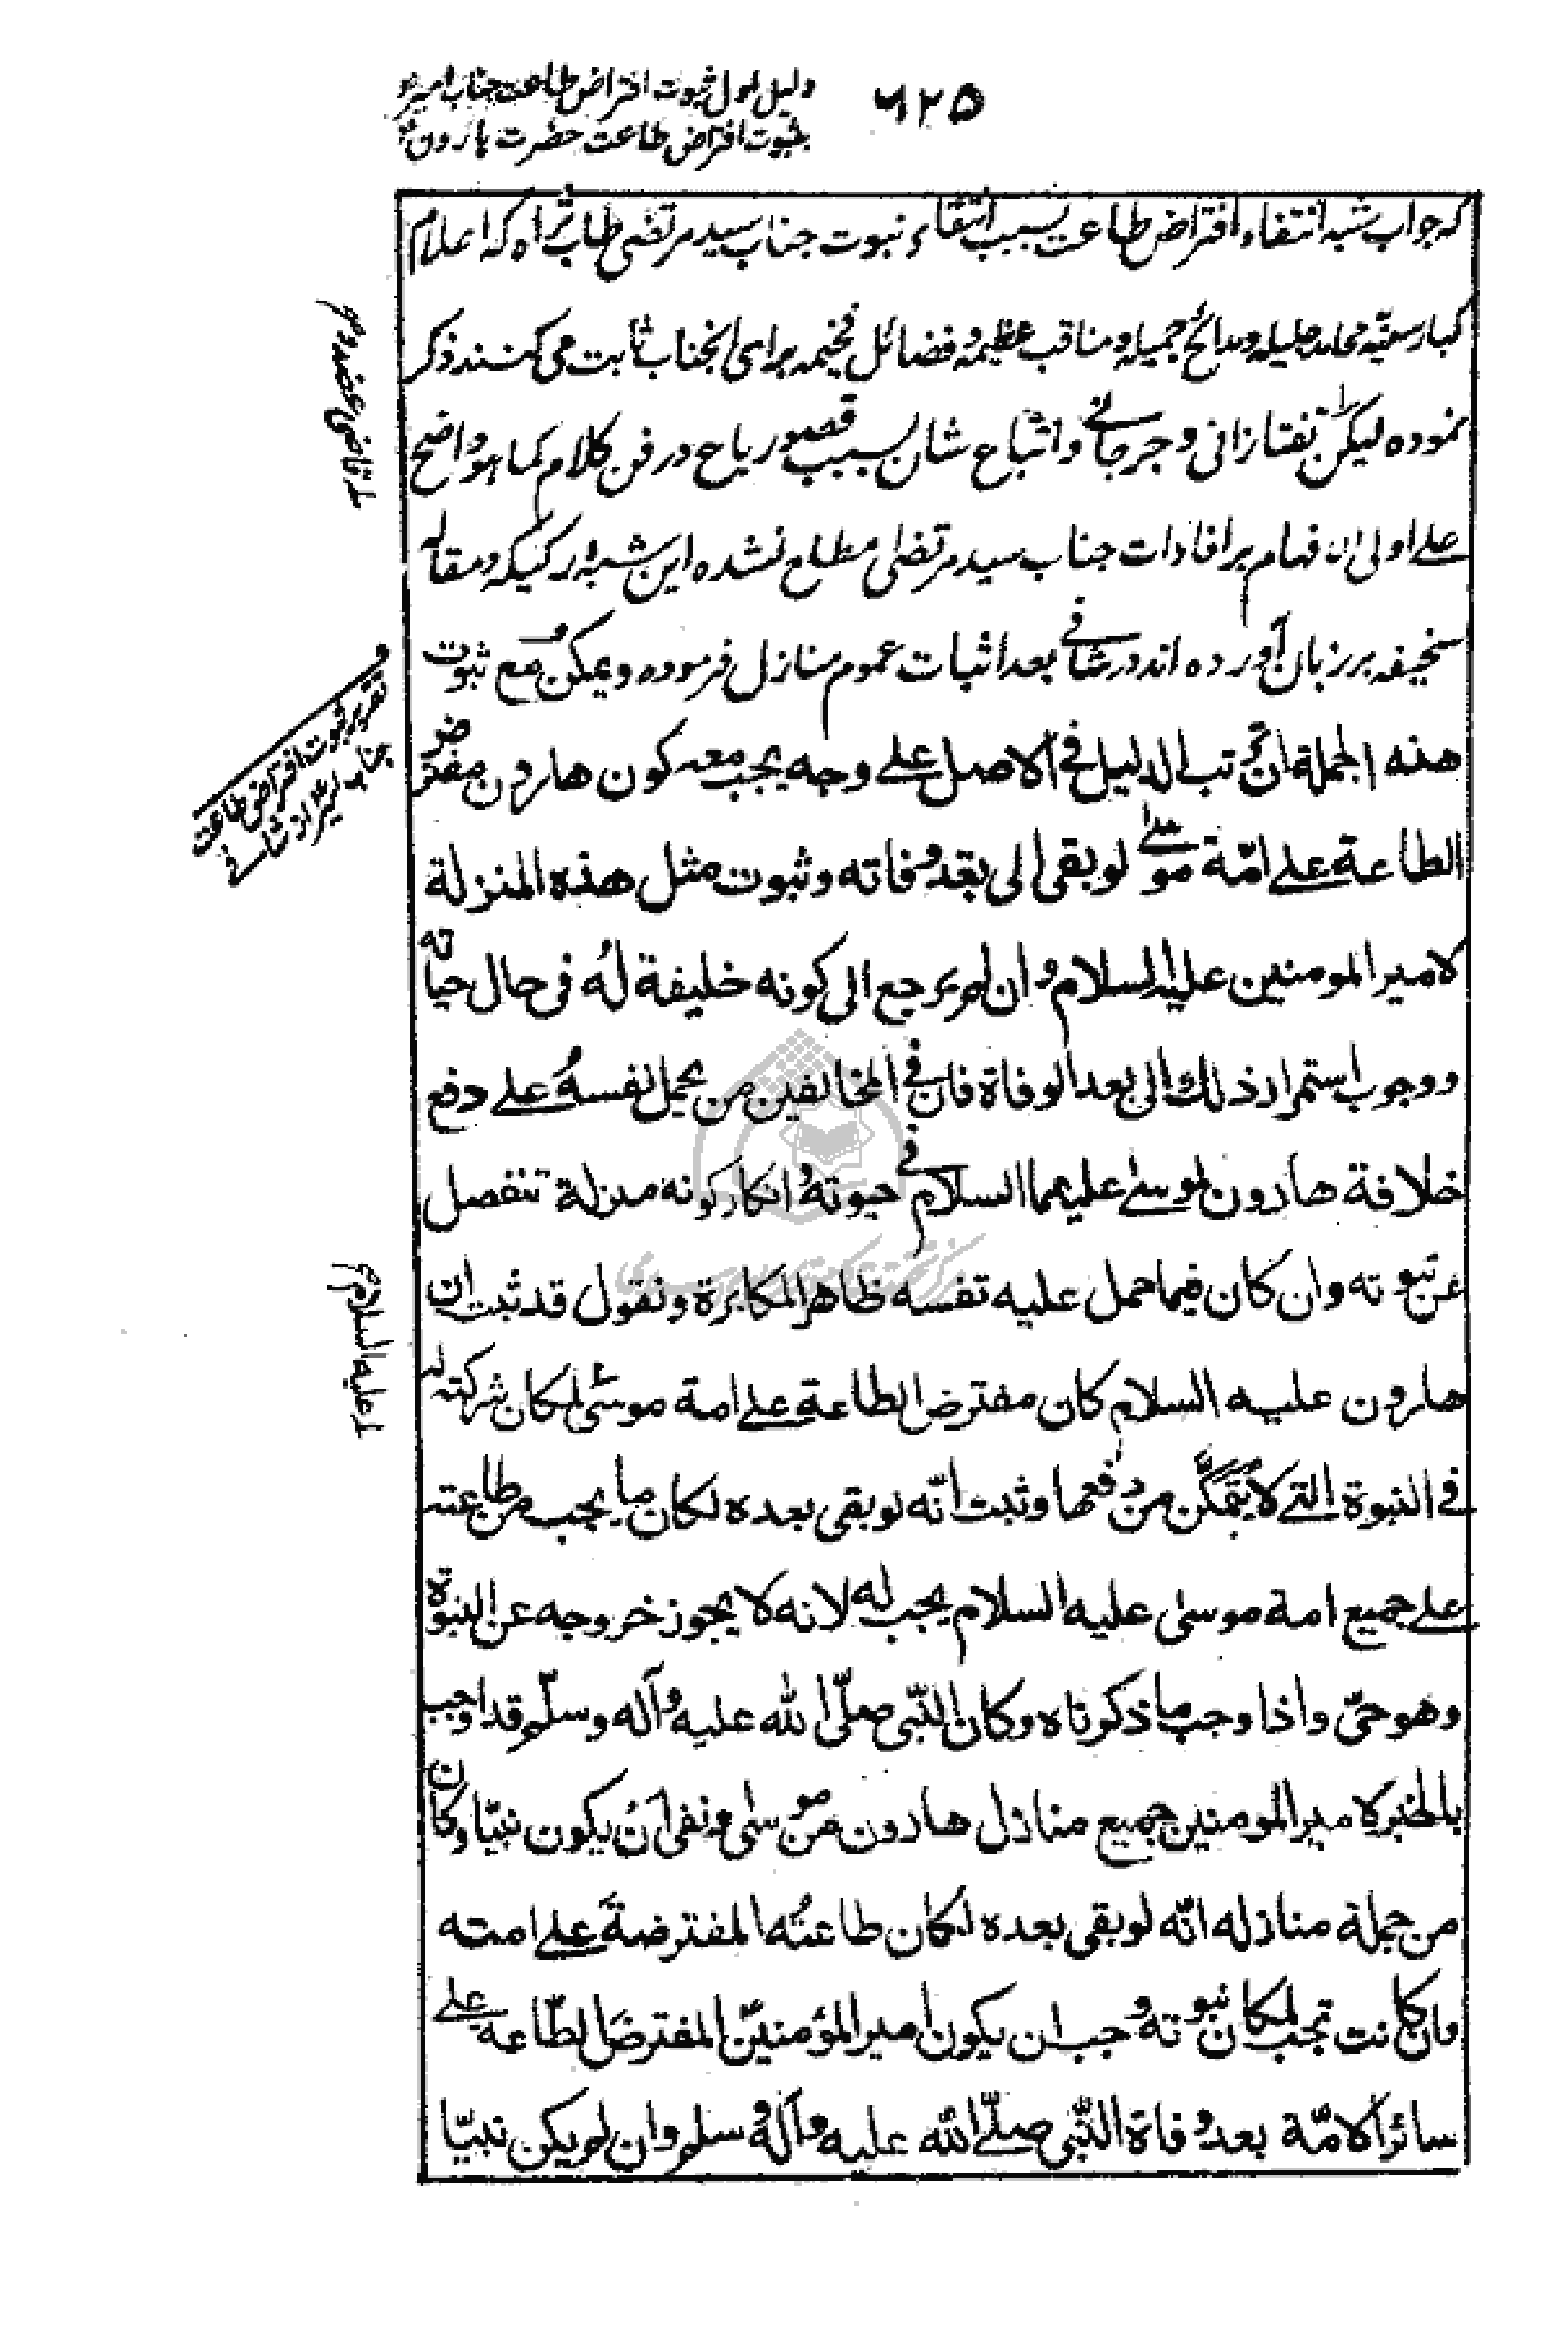 دلیل اول ثبوت افتراض طاعت جناب امیرؑ
بثبوت افتراض طاعت حضرت هارونؑ
۶۲۵
که جواب شبه انتفاء افتراض طاعت بسبب انتفاء نبوت جناب سید مرتضی طاب ثراه که اعلام
کبار سنیه محامد جلیله و مدائح جمیله و مناقب عظیمه و فضائل فخیمه برای آنجناب ثابت می کنند ذکر
نموده لیکن تفتازانی و جرجانی و اتباع شان بسبب قصور باع در فن کلام کما هو واضح
علی اولی الافهام بر افادات جناب سید مرتضی مطلع نشده این شبهٔ رکیکه و مقاله
سخیفه بر زبان آورده اند در شافی بعد اثبات عموم منازل فرموده و یمکن مع ثبوت
هذه الجملة ان ترتب الدلیل فی الاصل علی وجه یجب معه کون هارون مفترض
الطاعة علی امّة موسی لو بقی الی بعد وفاته و ثبوت مثل هذه المنزلة
لامیر المومنین علیه السلام و ان لم یرجع الی کونه خلیفة له فی حال حیاته
و وجوب استمرار ذلك الی بعد الوفاة فان فی المخالفین من یحمل نفسه علی دفع
خلافة هارون لموسی علیهما السلام فی حیوته و انکار کونه منزلة تنفصل
عن نبوته و ان کان فیما حمل علیه نفسه ظاهر المکابرة و نقول قد ثبت ان
هارون علیه السلام کان مفترض الطاعة علی امة موسی لمکان شرکته له
فی النبوة التی لا یتمکّن من دفعها و ثبت انّه لو بقی بعده لکان ما یجب من طاعته
علی جمیع امة موسی علیه السلام یجب له لانه لا یجوز خروجه عن النبوة
و هو حیّ و اذا وجب ما ذکرناه و کان النّبی صلّی الله علیه و آله و سلّم قد اوجب
بالخبر لامیر المومنین جمیع منازل هارون من موسی و نفی اَنْ یکون نبیّا و کان
من جملة منازله انّه لو بقی بعده لکان طاعتُه المفترضةَ علی امته
و ان کانت تجب لمکان نبوته وجب ان یکون امیر المؤمنینؑ المفترض الطّاعة علی
سائر الامّة بعد وفاة النّبی صلّی الله علیه و آله و سلم و ان لم یکن نبیّا
قاضی عضد
تقریر ثبوت افتراض طاعت
جناب امیرؑ از شافی
علیه السلام